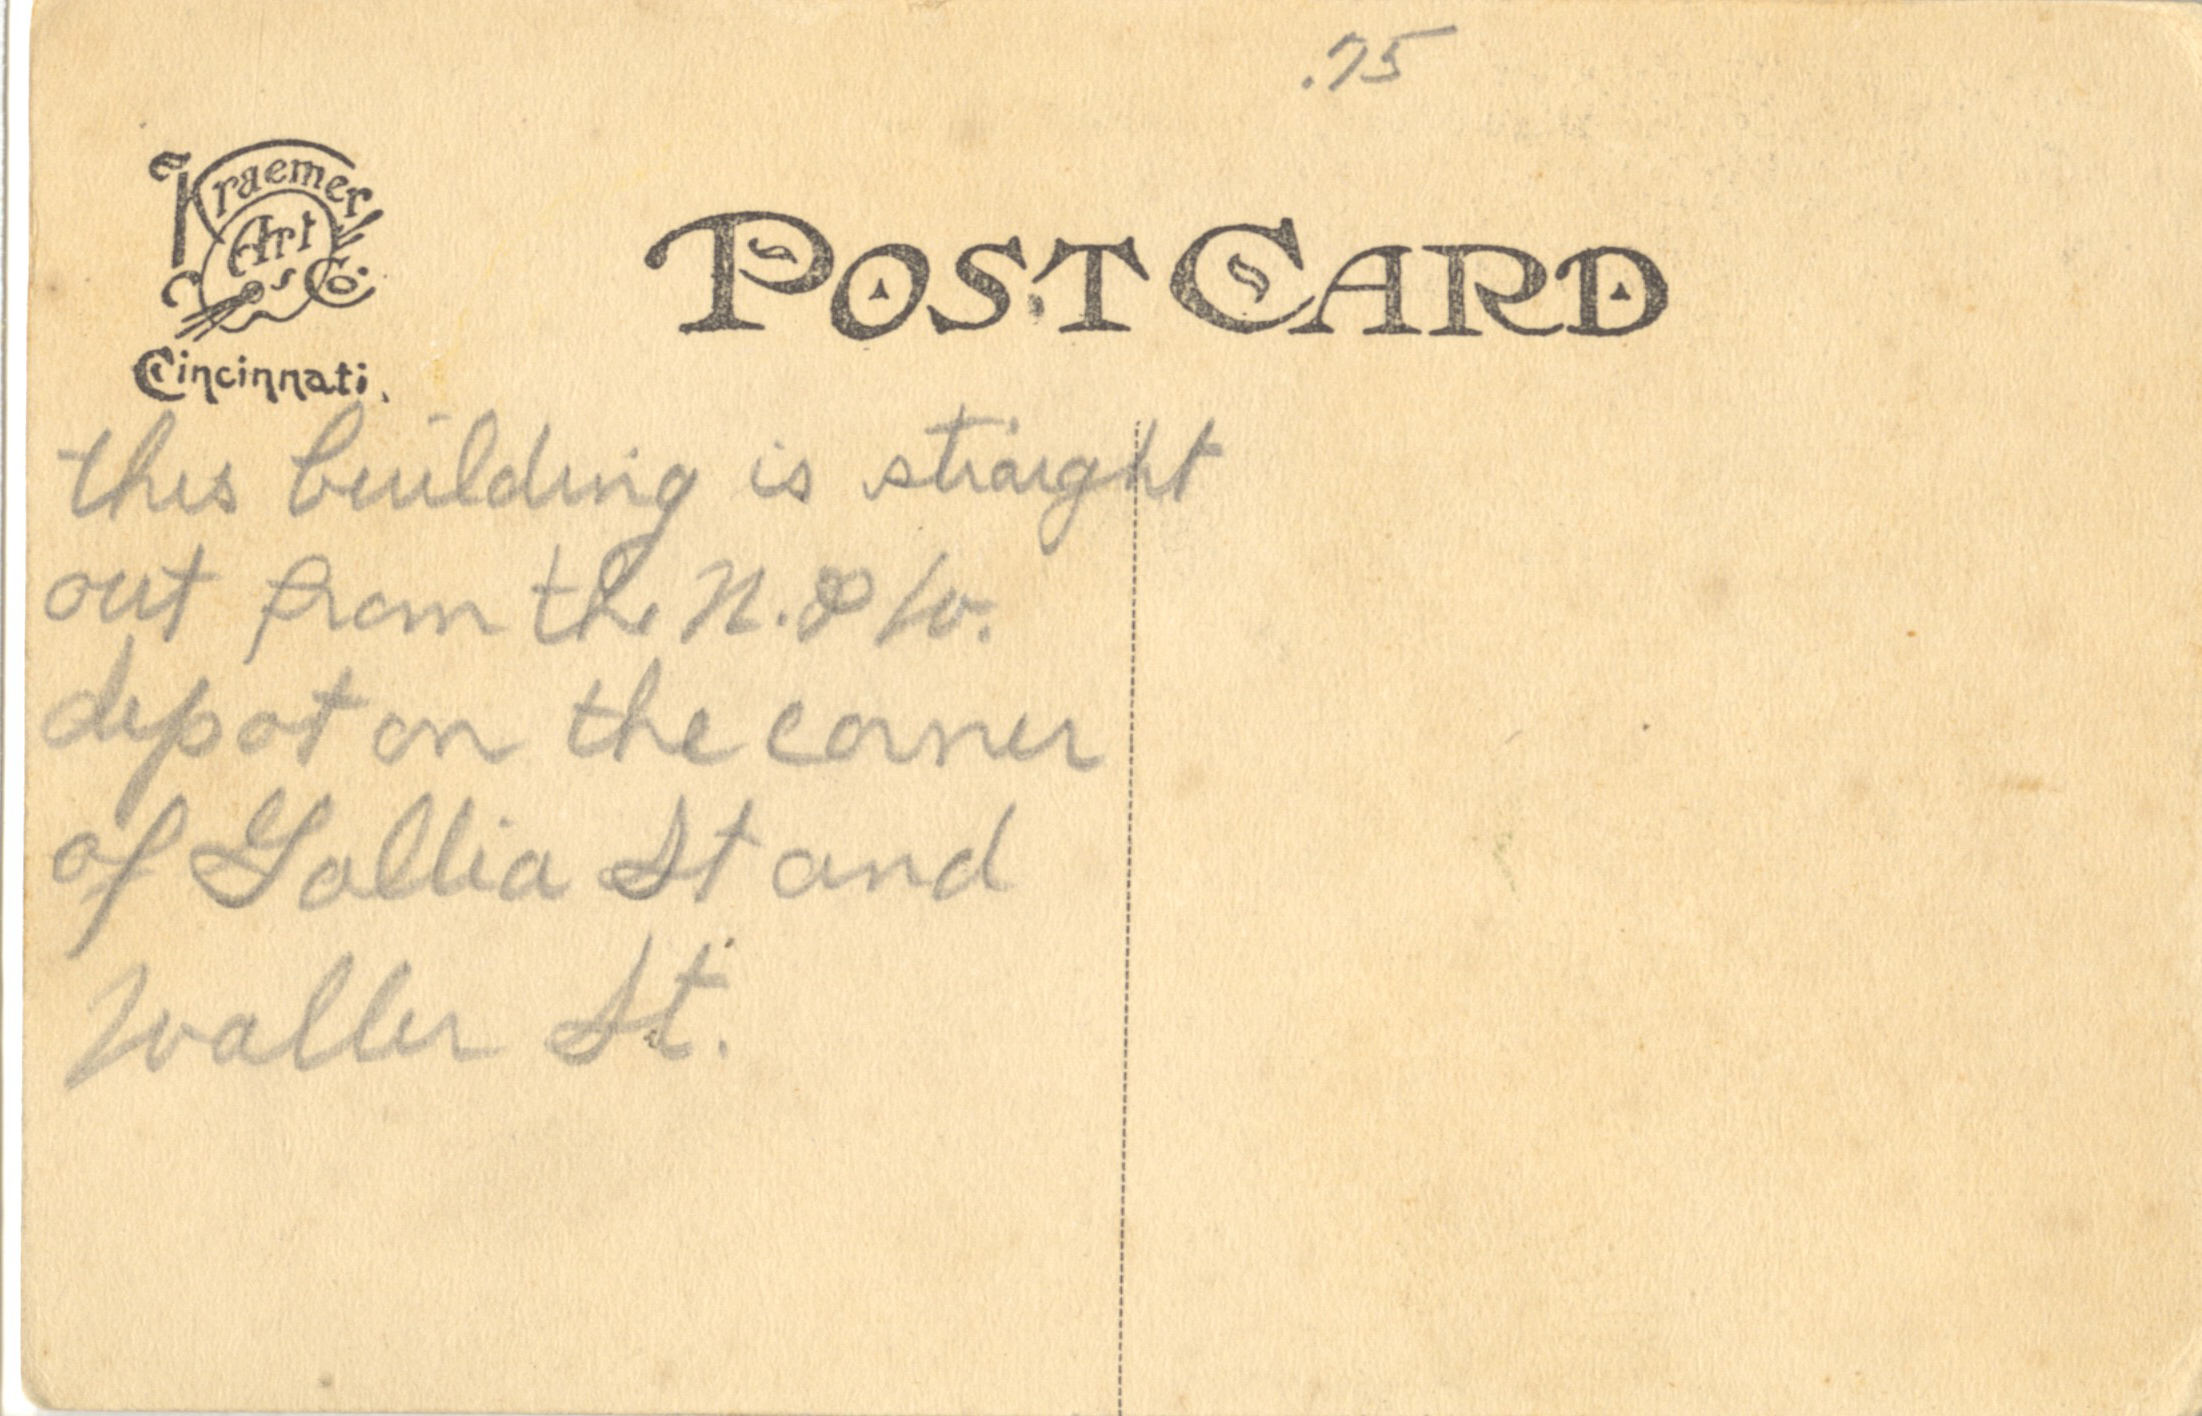 .75
Kraemer
Art
Co.
Cincinnati.
POST CARD
this building is straight
out from the N. & W.
depot on the corner
of Gallia St and
Waller St.